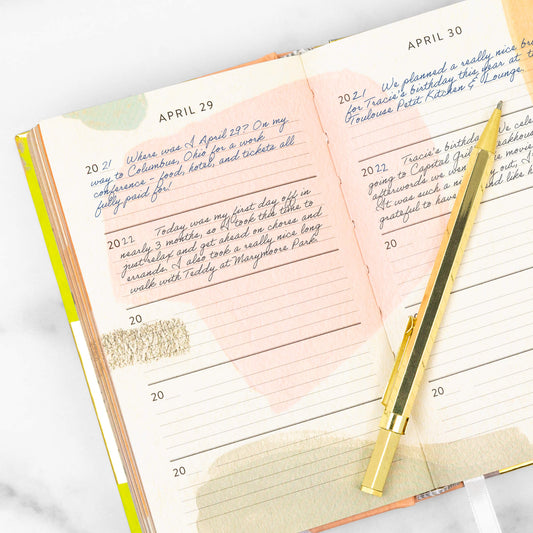 APRIL 29
2021 Where was I April 29? On my
way to Columbus, Ohio for a work
conference - food, hotel, and tickets all
fully paid for!
2022 Today was my first day off in
nearly 3 months, so I took this time to
just relax and get ahead on chores and
errands. I also took a really nice long
walk with Teddy at Marymoore Park.
20
20
20
APRIL 30
2021 We planned a really nice br
for Tracie's birthday this year at t
Toulouse Petit Kitchen & Lounge.
2022 Tracie's birthday! We cele
going to Capital Grill
afterwords we wen the movie
It was such a n y out, I
grateful to have and like h
20
20